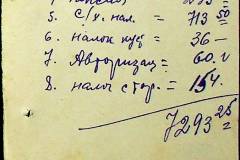 5. С/х. нал. = 713 50
6. налог кус = 36 —
7. Авторизац = 60. "
8. налог стор. = 154.
7293 25